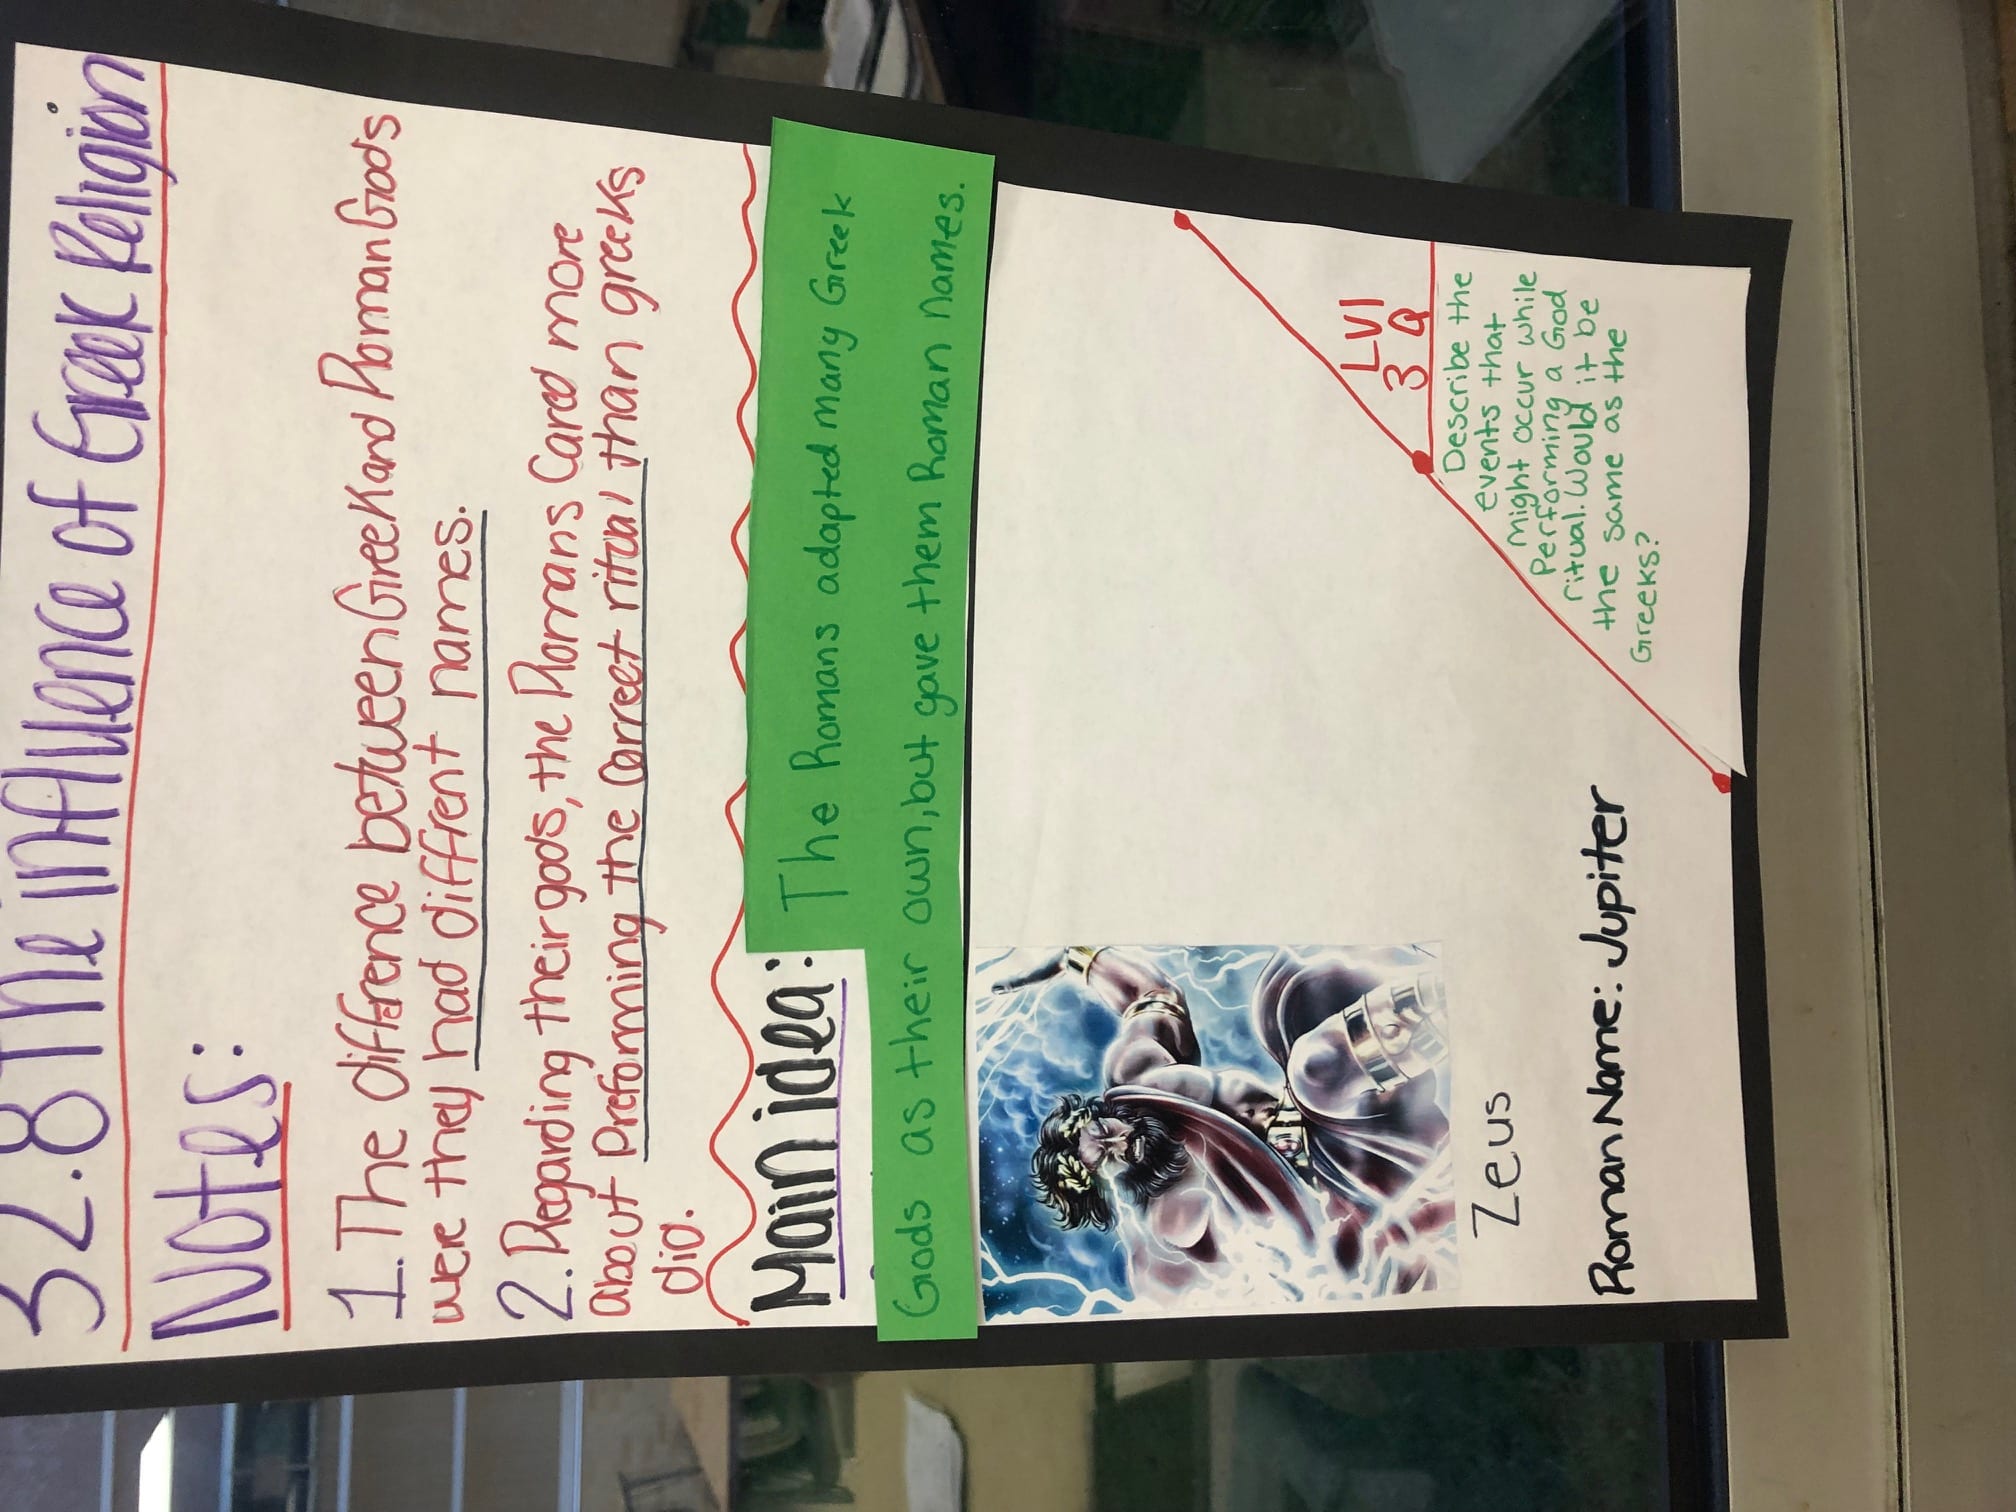 32.8 The influence of Greek Religion
Notes:
1. The difference between Greek and Roman Gods
were they had diffrent names.
2. Regarding their gods, the Romans Cared more
about Preforming the Correct ritual than greeks
did.
Main idea: The Romans adapted many Greek
Gods as their own, but gave them Roman names.
LVl
3 Q
Describe the
events that
might occur while
Performing a God
ritual. Would it be
the same as the
Greeks?
Zeus
Roman Name: Jupiter